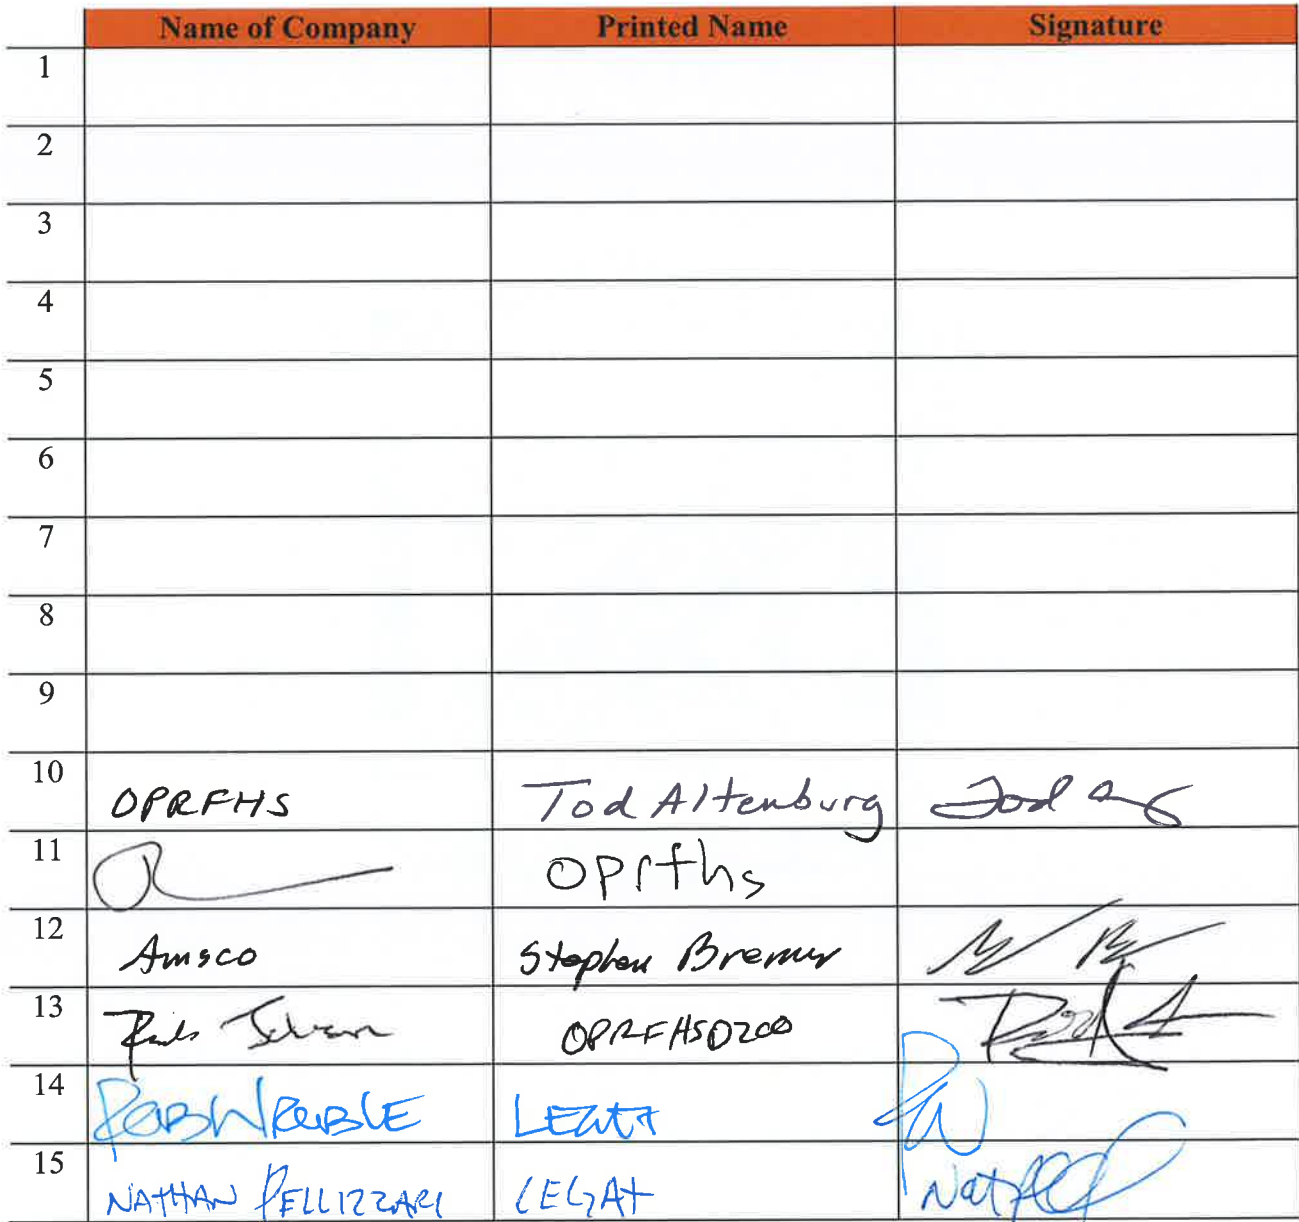 Name of Company Printed Name Signature
1
2
3
4
5
6
7
8
9
10 OPRFHS Tod Altenburg Tod
11 OPrfhs
12 Amsco Stephen Bremer
13 OPRFHSD200
14 ROB WROBLE LEGAT
15 NATHAN PELLIZZARI LEGAT Nat